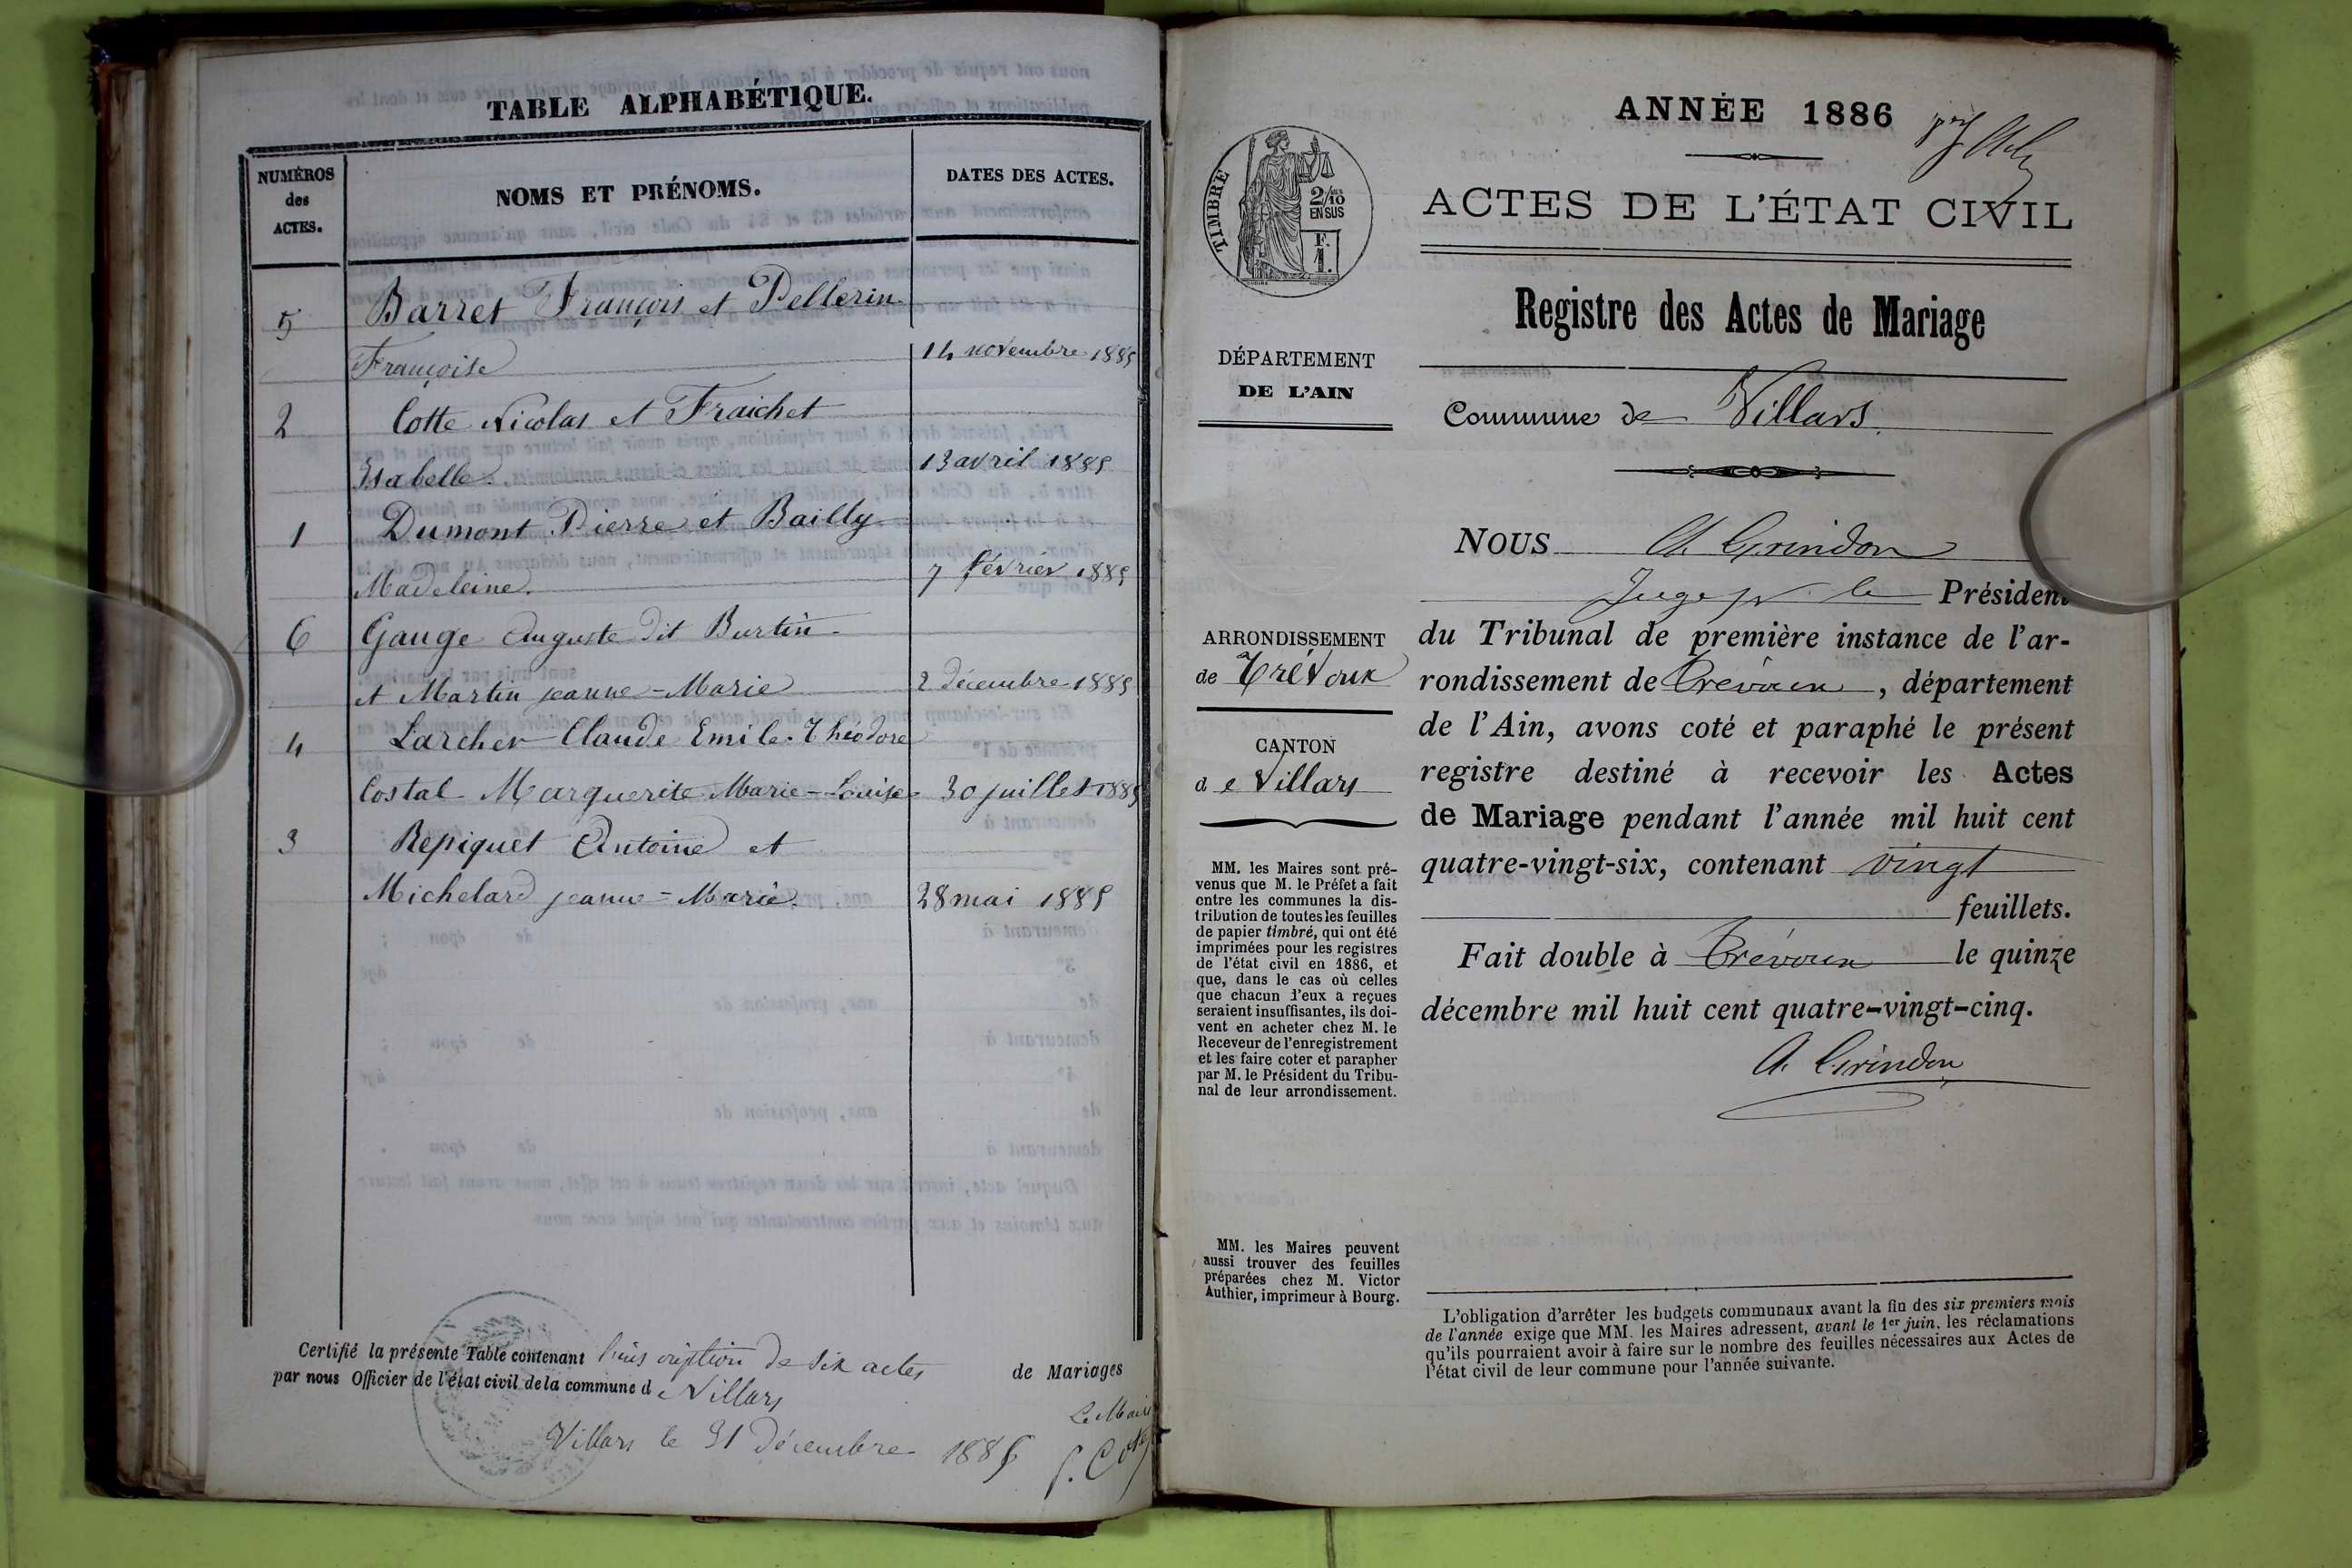 TABLE ALPHABÉTIQUE.
NUMÉROS
des
ACTES.
NOMS ET PRÉNOMS.
DATES DES ACTES.
5 Barret François et Pellerin
Françoise 14 novembre 1885
2 Cotte Nicolas et Fraichet
Isabelle. 13 avril 1885
1 Dumont Pierre et Bailly
Madeleine. 7 février 1885
6 Gauge Auguste dit Burtin
et Martin jeanne-Marie 2 décembre 1885
4 Larcher Claude Emile Théodore
Costal Marguerite Marie-Louise 30 juillet 1885
3 Repiquet Antoine et
Michelard jeanne-Marie. 28 mai 1885
Certifié la présente Table contenant l'inscription de six actes de Mariages
par nous Officier de l'état civil de la commune de Villars
Villars le 31 Décembre 1885
Le Maire
ANNÉE 1886
ACTES DE L'ÉTAT CIVIL
TIMBRE
2/10
EN SUS
F.
1.
Registre des Actes de Mariage
DÉPARTEMENT
DE L'AIN
Commune de Villars
NOUS A. Grindon
Juge pr le Président
ARRONDISSEMENT
de Trévoux
CANTON
de Villars
du Tribunal de première instance de l'ar-
rondissement de Trévoux, département
de l'Ain, avons coté et paraphé le présent
registre destiné à recevoir les Actes
de Mariage pendant l'année mil huit cent
quatre-vingt-six, contenant vingt
feuillets.
Fait double à Trévoux le quinze
décembre mil huit cent quatre-vingt-cinq.
A. Grindon
MM. les Maires sont pré-
venus que M. le Préfet a fait
entre les communes la dis-
tribution de toutes les feuilles
de papier timbré, qui ont été
imprimées pour les registres
de l'état civil en 1886, et
que, dans le cas où celles
que chacun d'eux a reçues
seraient insuffisantes, ils doi-
vent en acheter chez M. le
Receveur de l'enregistrement
et les faire coter et parapher
par M. le Président du Tribu-
nal de leur arrondissement.
MM. les Maires peuvent
aussi trouver des feuilles
préparées chez M. Victor
Authier, imprimeur à Bourg.
L'obligation d'arrêter les budgets communaux avant la fin des six premiers mois
de l'année exige que MM. les Maires adressent, avant le 1er juin, les réclamations
qu'ils pourraient avoir à faire sur le nombre des feuilles nécessaires aux Actes de
l'état civil de leur commune pour l'année suivante.